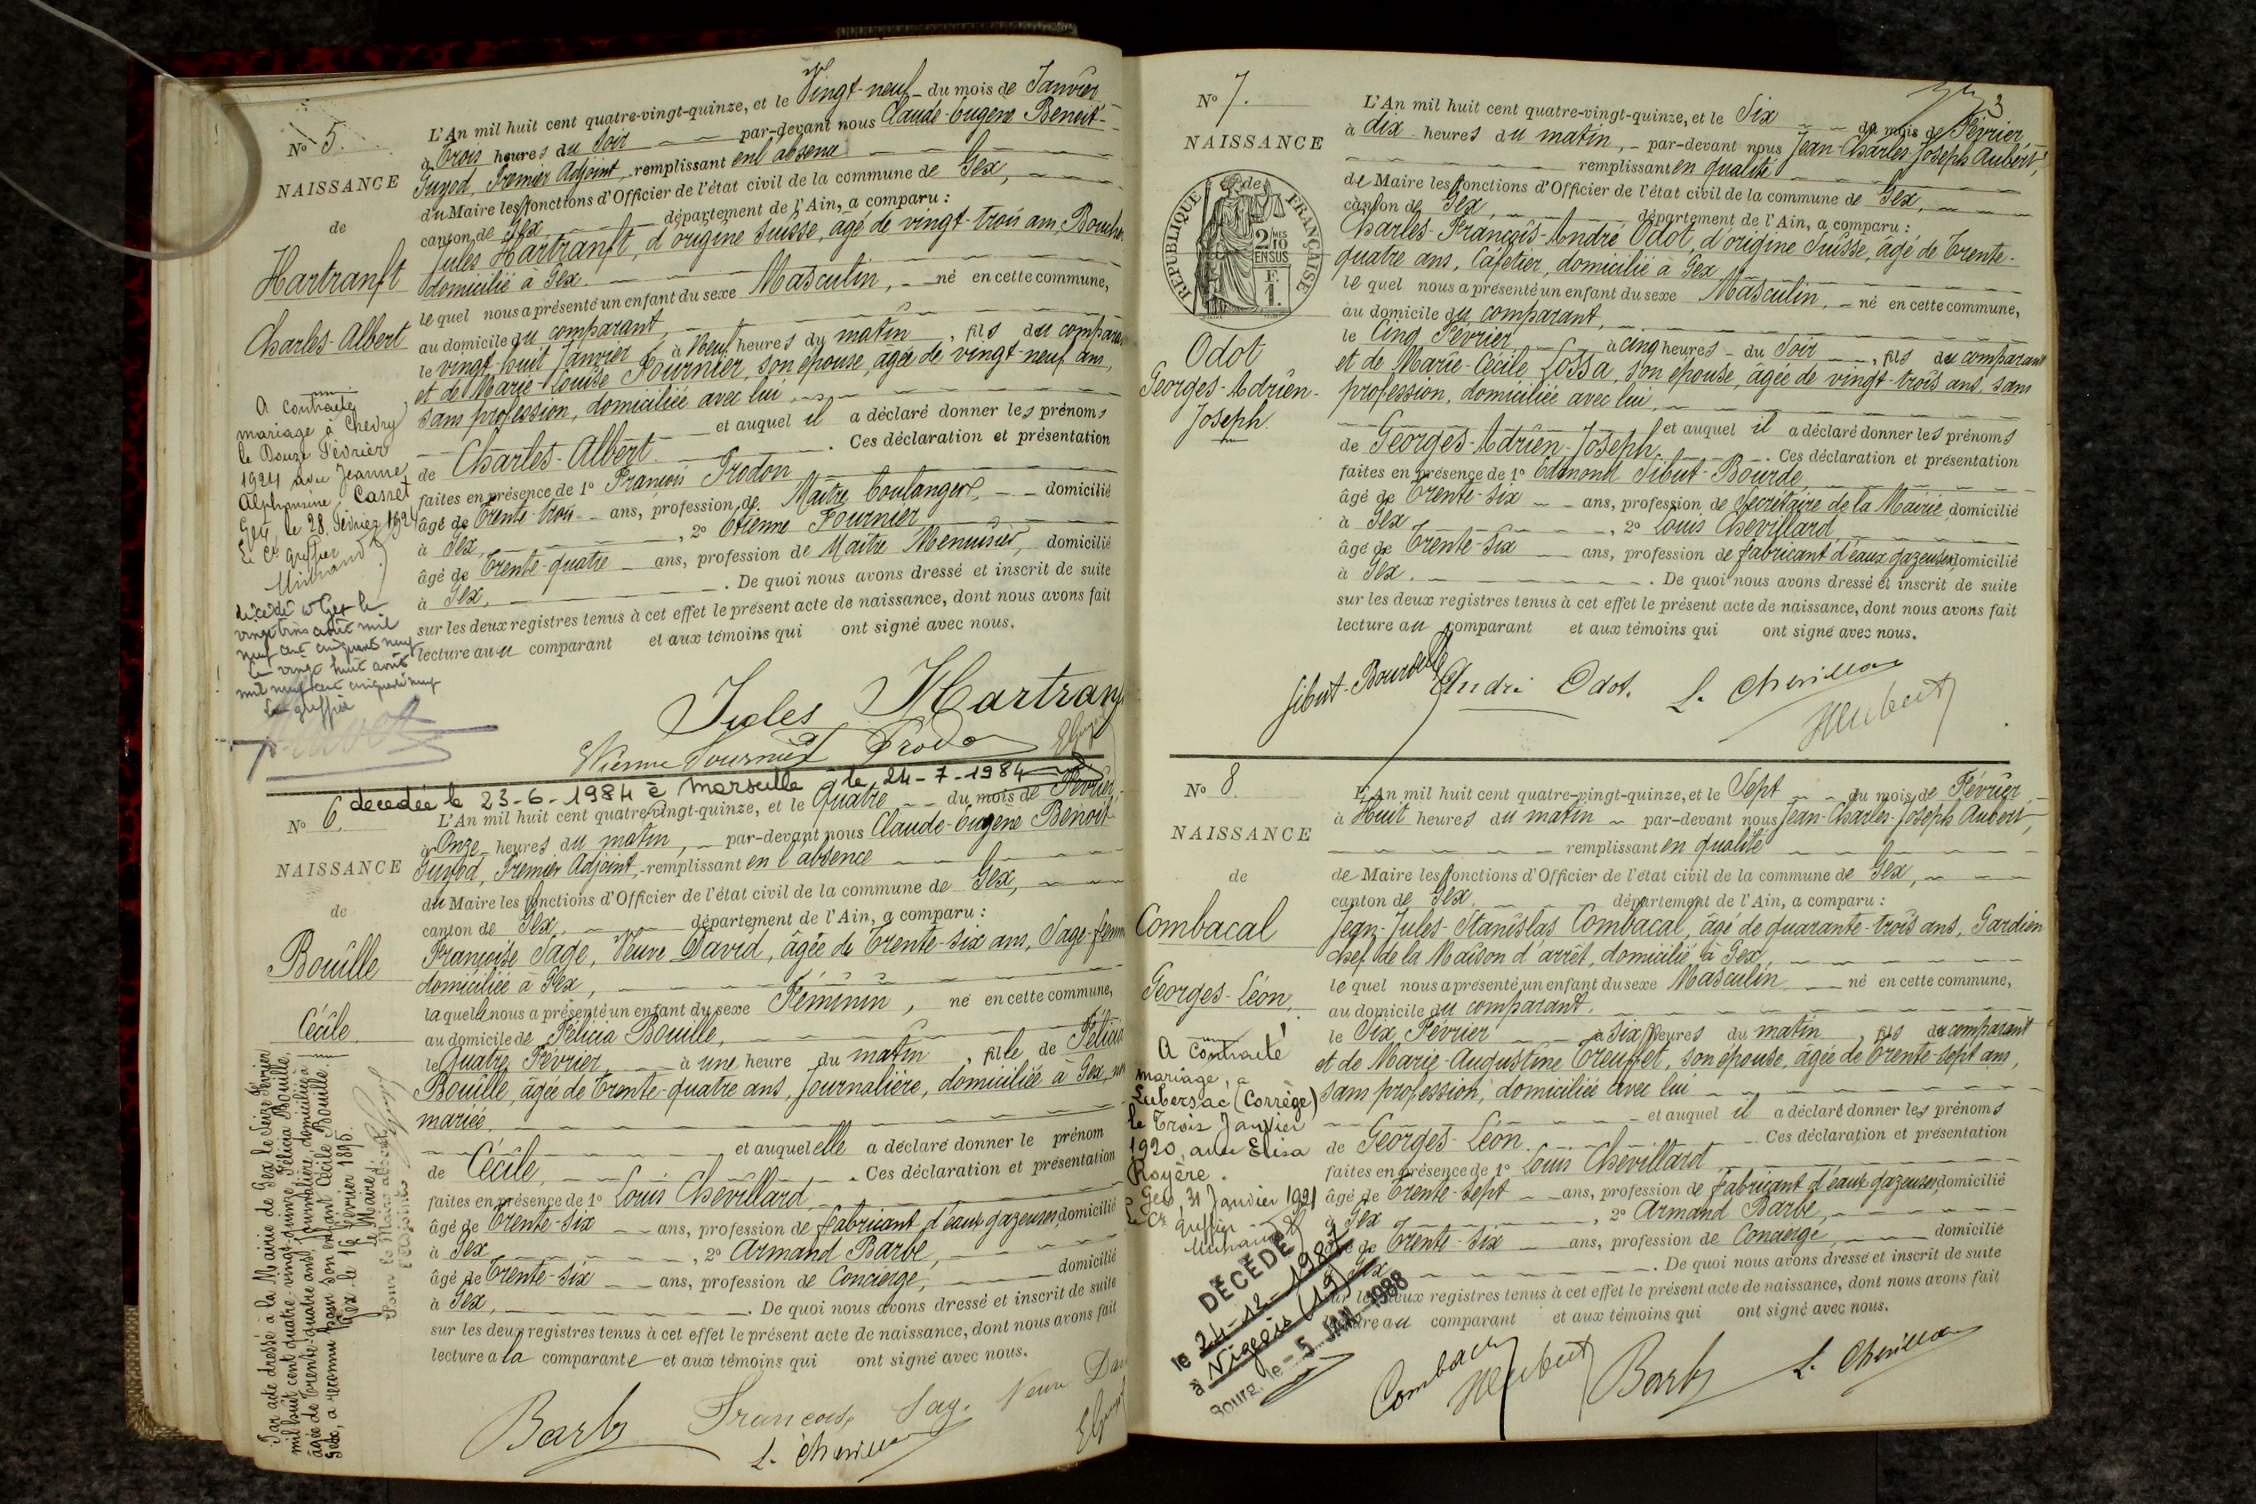 N° 5.
NAISSANCE
de
Hartranft
Charles-Albert
L'An mil huit cent quatre-vingt-quinze, et le Vingt-neuf du mois de Janvier
à Trois heures du Soir par-devant nous Claude-Eugène Benoit-
Guyod, Premier Adjoint, remplissant en l'absence
du Maire les fonctions d'Officier de l'état civil de la commune de Gex,
canton de Gex, département de l'Ain, a comparu :
Jules Hartranft, d'origine Suisse, âgé de vingt-trois ans, Boucher
domicilié à Gex.
lequel nous a présenté un enfant du sexe Masculin, né en cette commune,
au domicile du comparant,
le vingt-huit Janvier à Neuf heures du matin, fils du comparant
et de Marie-Louise Fournier, son épouse, âgée de vingt-neuf ans,
sans profession, domiciliée avec lui,
et auquel il a déclaré donner les prénoms
de Charles-Albert. Ces déclaration et présentation
faites en présence de 1° François Prodon
âgé de Trente-trois ans, profession de Maître boulanger, domicilié
à Gex, , 2° Etienne Fournier
âgé de Trente-quatre ans, profession de Maître Menuisier, domicilié
à Gex, . De quoi nous avons dressé et inscrit de suite
sur les deux registres tenus à cet effet le présent acte de naissance, dont nous avons fait
lecture au comparant et aux témoins qui ont signé avec nous.
A contracté
mariage à Chevry
le Douze Février
1924 avec Jeanne
Alphonsine Casset
Gex, le 28 Février 1924
Le Cs Greffier
décédé à Gex le
vingt trois août mil
neuf cent cinquante neuf
le vingt huit août
mil neuf cent cinquante neuf
Le greffier
Jules Hartranft
Etienne Fournier Prodon
N° 6. décédée le 23-6-1984 à Marseille le 24-7-1984
NAISSANCE
de
Bouille
Cécile.
L'An mil huit cent quatre-vingt-quinze, et le Quatre du mois de Février,
à Onze heures du matin, par-devant nous Claude-Eugène Benoit
Guyod, Premier Adjoint, remplissant en l'absence
du Maire les fonctions d'Officier de l'état civil de la commune de Gex,
canton de Gex, département de l'Ain, a comparu :
Françoise Sage, Veuve David, âgée de Trente-six ans, Sage-femme
domiciliée à Gex,
laquelle nous a présenté un enfant du sexe Féminin, né en cette commune,
au domicile de Félicia Bouille,
le Quatre Février à une heure du matin, fille de Félicia
Bouille, âgée de Trente-quatre ans, Journalière, domiciliée à Gex, non
mariée.
et auquel elle a déclaré donner le prénom
de Cécile, . Ces déclaration et présentation
faites en présence de 1° Louis Chevillard
âgé de Trente-six ans, profession de fabricant d'eaux gazeuses, domicilié
à Gex , 2° Armand Barbe,
âgé de Trente-six ans, profession de Concierge, domicilié
à Gex, . De quoi nous avons dressé et inscrit de suite
sur les deux registres tenus à cet effet le présent acte de naissance, dont nous avons fait
lecture à la comparante et aux témoins qui ont signé avec nous.
Par acte dressé à la Mairie de Gex le Seize Février
mil huit cent quatre-vingt-quinze, Félicia Bouille,
âgée de Trente-quatre ans, Journalière, domiciliée à
Gex, a reconnu pour son enfant Cécile Bouille.
Gex le 16 Février 1895.
Le Maire,
Pour le Maire absent
l'adjoint
Barbe Françoise Sage Veuve David
L. Chevillard
3
N° 7.
NAISSANCE
de
RÉPUBLIQUE FRANÇAISE
2 MES
10
EN SUS
F.
1.
Odot
Georges-Adrien-
Joseph
L'An mil huit cent quatre-vingt-quinze, et le Six du mois de Février,
à dix heures du matin, par-devant nous Jean-Charles-Joseph Aubert,
remplissant en qualité
de Maire les fonctions d'Officier de l'état civil de la commune de Gex,
canton de Gex, département de l'Ain, a comparu :
Charles-François-André Odot, d'origine Suisse, âgé de Trente-
quatre ans, Cafetier, domicilié à Gex
lequel nous a présenté un enfant du sexe Masculin, né en cette commune,
au domicile du comparant,
le Cinq Février à cinq heures du Soir, fils du comparant
et de Marie-Cécile Lossa, son épouse, âgée de vingt-trois ans, sans
profession, domiciliée avec lui,
et auquel il a déclaré donner les prénoms
de Georges-Adrien-Joseph. Ces déclaration et présentation
faites en présence de 1° Edmond Sibut-Bourde,
âgé de Trente-six ans, profession de Secrétaire de la Mairie, domicilié
à Gex , 2° Louis Chevillard
âgé de Trente-six ans, profession de fabricant d'eaux gazeuses, domicilié
à Gex. . De quoi nous avons dressé et inscrit de suite
sur les deux registres tenus à cet effet le présent acte de naissance, dont nous avons fait
lecture au comparant et aux témoins qui ont signé avec nous.
Sibut-Bourde André Odot. L. Chevillard
JAubert
N° 8.
NAISSANCE
de
Combacal
Georges-Léon.
L'An mil huit cent quatre-vingt-quinze, et le Sept du mois de Février
à Huit heures du matin par-devant nous Jean-Charles-Joseph Aubert,
remplissant en qualité
de Maire les fonctions d'Officier de l'état civil de la commune de Gex,
canton de Gex, département de l'Ain, a comparu :
Jean-Jules-Stanislas Combacal, âgé de quarante-trois ans, Gardien
chef de la Maison d'arrêt, domicilié à Gex,
lequel nous a présenté un enfant du sexe Masculin né en cette commune,
au domicile du comparant.
le Six Février à Six heures du matin, fils du comparant
et de Marie-Augustine Treuffet, son épouse, âgée de Trente-sept ans,
sans profession, domiciliée avec lui
et auquel il a déclaré donner les prénoms
de Georges-Léon. Ces déclaration et présentation
faites en présence de 1° Louis Chevillard
âgé de Trente-sept ans, profession de fabricant d'eaux gazeuses, domicilié
à Gex , 2° Armand Barbe,
âgé de Trente-six ans, profession de Concierge, domicilié
à Gex . De quoi nous avons dressé et inscrit de suite
sur les deux registres tenus à cet effet le présent acte de naissance, dont nous avons fait
lecture au comparant et aux témoins qui ont signé avec nous.
A contracté
mariage, à
Lubersac (Corrèze)
le Trois Janvier
1920, avec Elisa
Royère.
Gex, 31 Janvier 1921
Le Cs Greffier
DÉCÉDÉ
le 24-12-1987
à Vigeois (19)
Bourg, le - 5 JAN. 1988
Combacal JAubert Barbe L. Chevillard